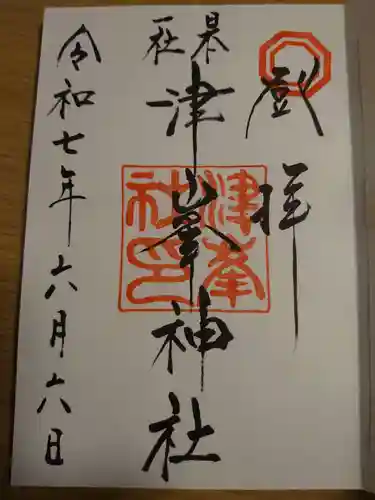 登拝
県社
津峯神社
津峯
社印
令和七年六月六日